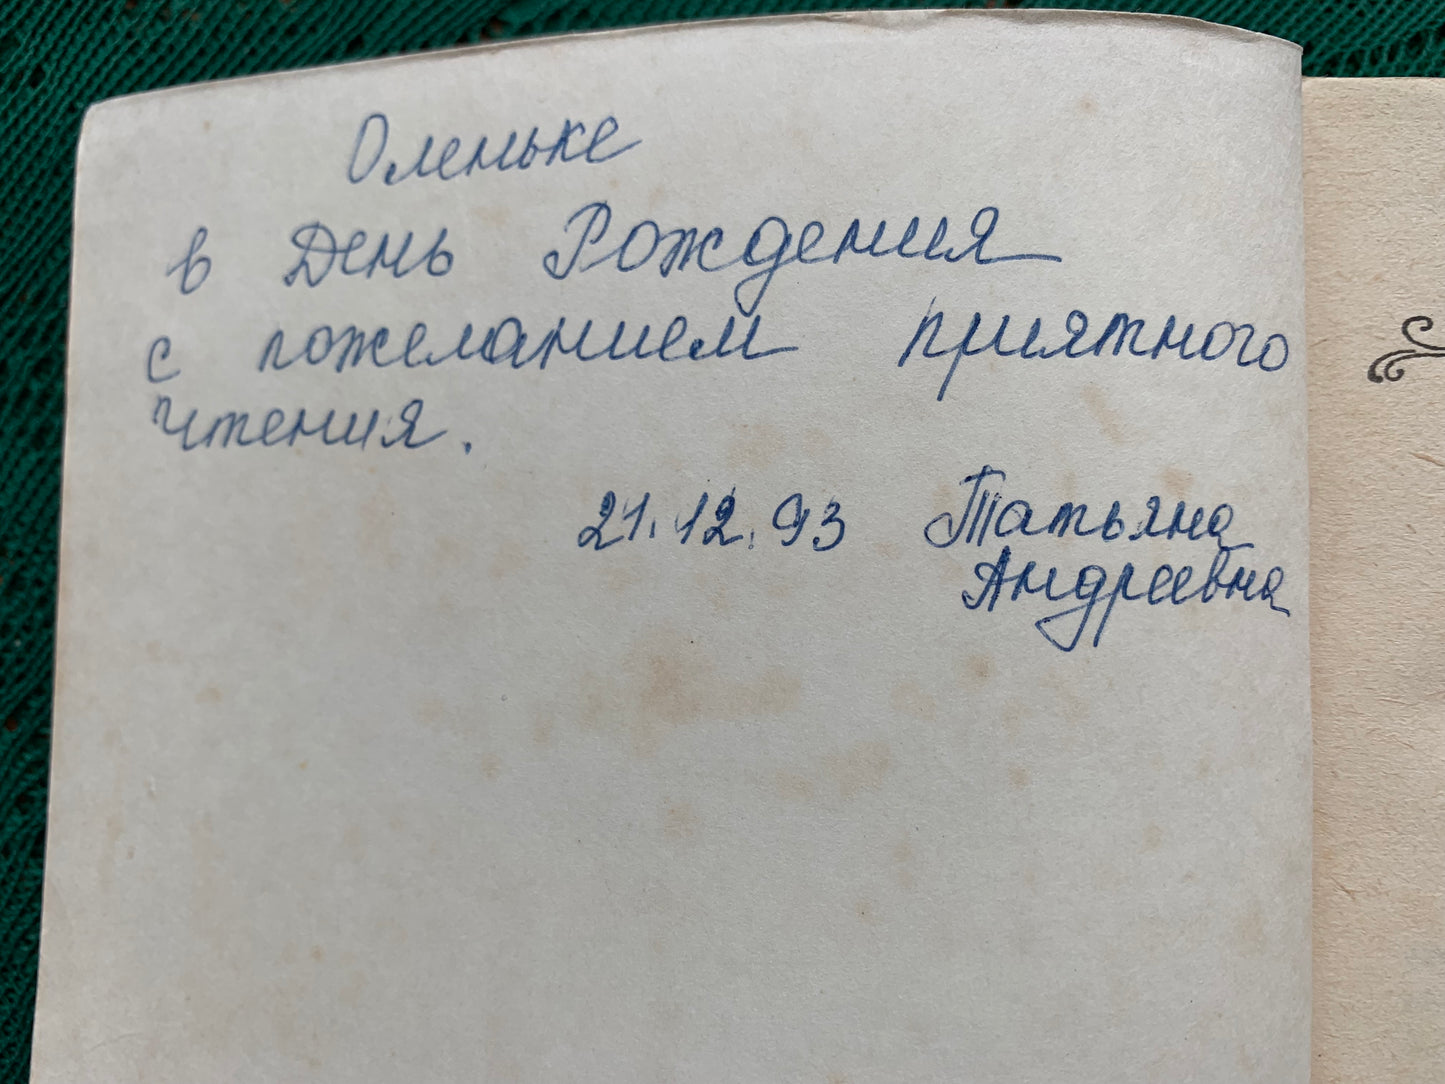 Оленьке
в День Рождения
с пожеланием приятного
чтения.
21.12.93 Татьяна
Андреевна